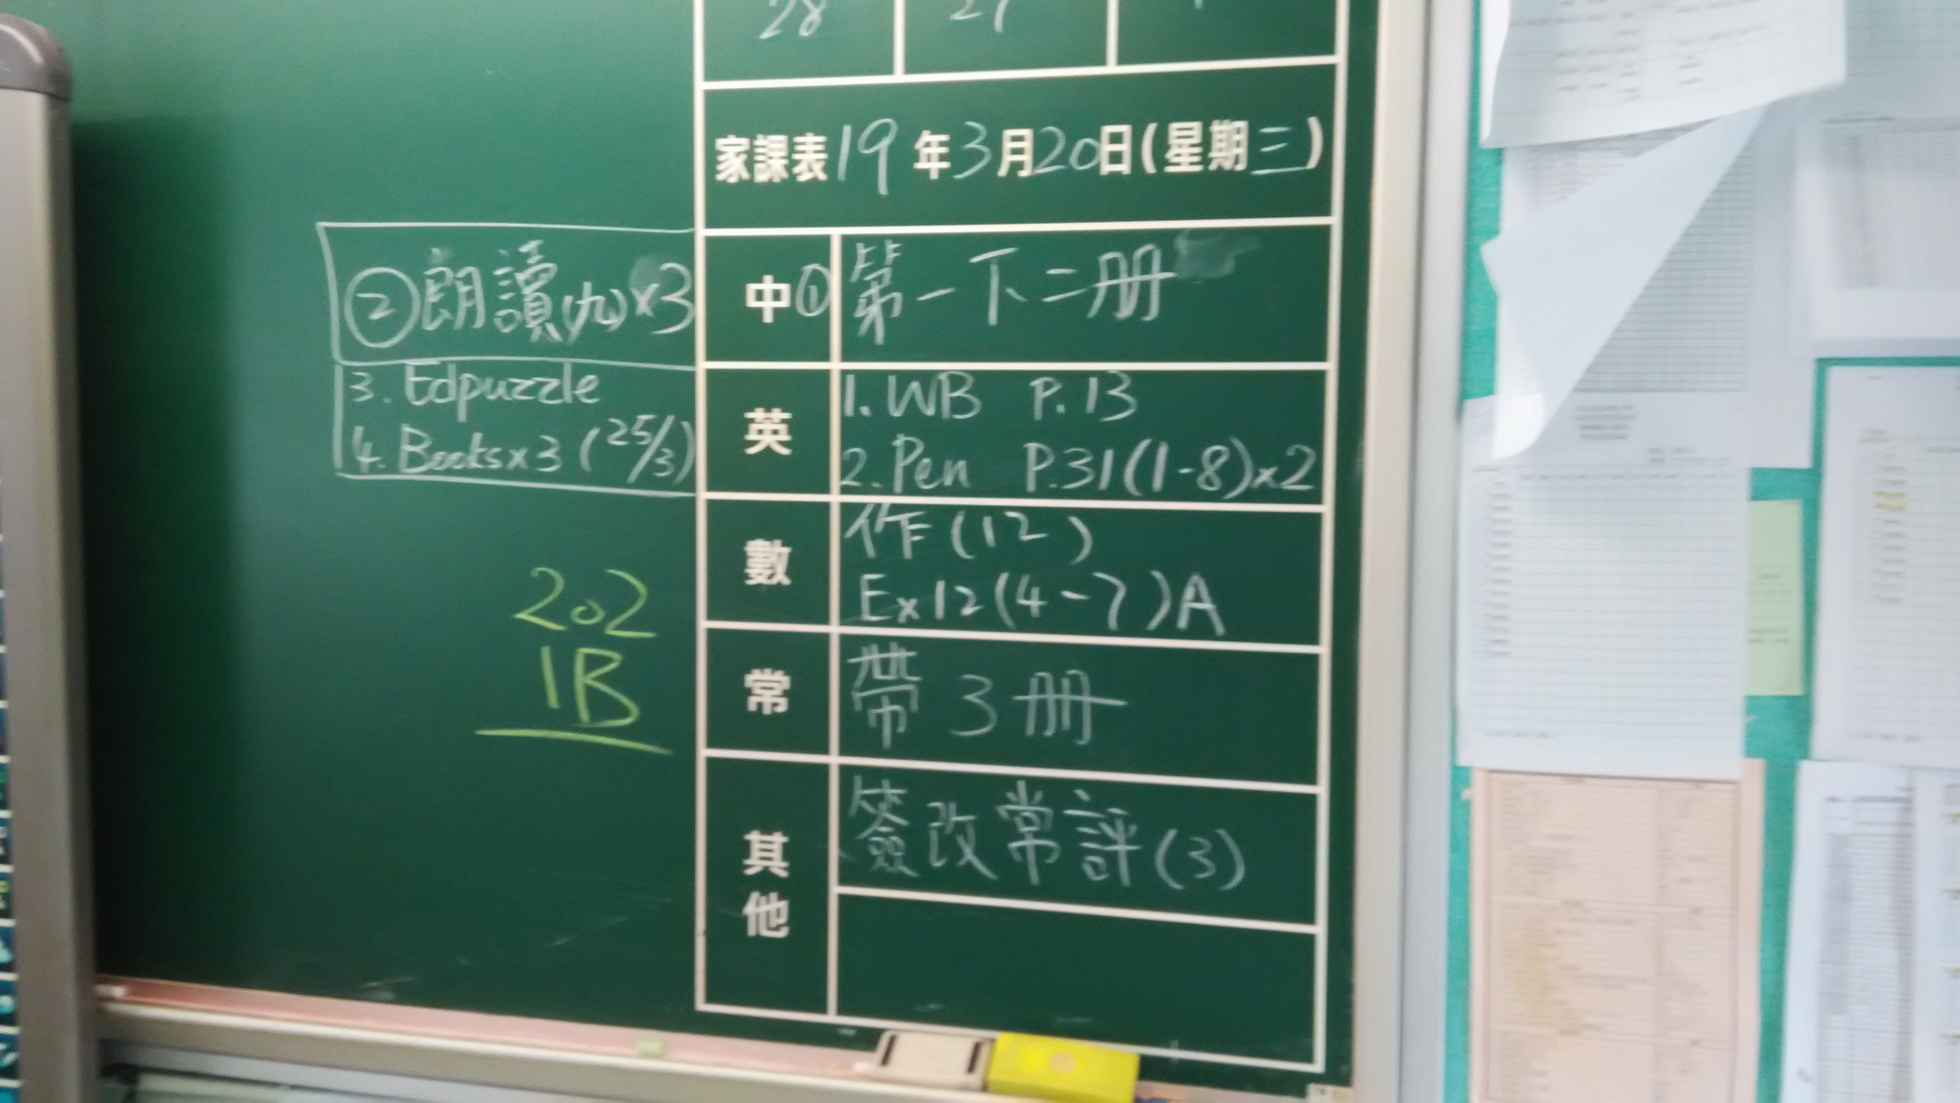 28 27
家課表19年3月20日(星期三)
②朗讀(九)x3
中① 第一下二册
3. Edpuzzle
4. Books x3 (25/3)
英
1. WB P.13
2. Pen P.31(1-8)x2
數
作(12)
Ex12(4-7)A
202
1B
常 帶3册
其他
簽改常評(3)